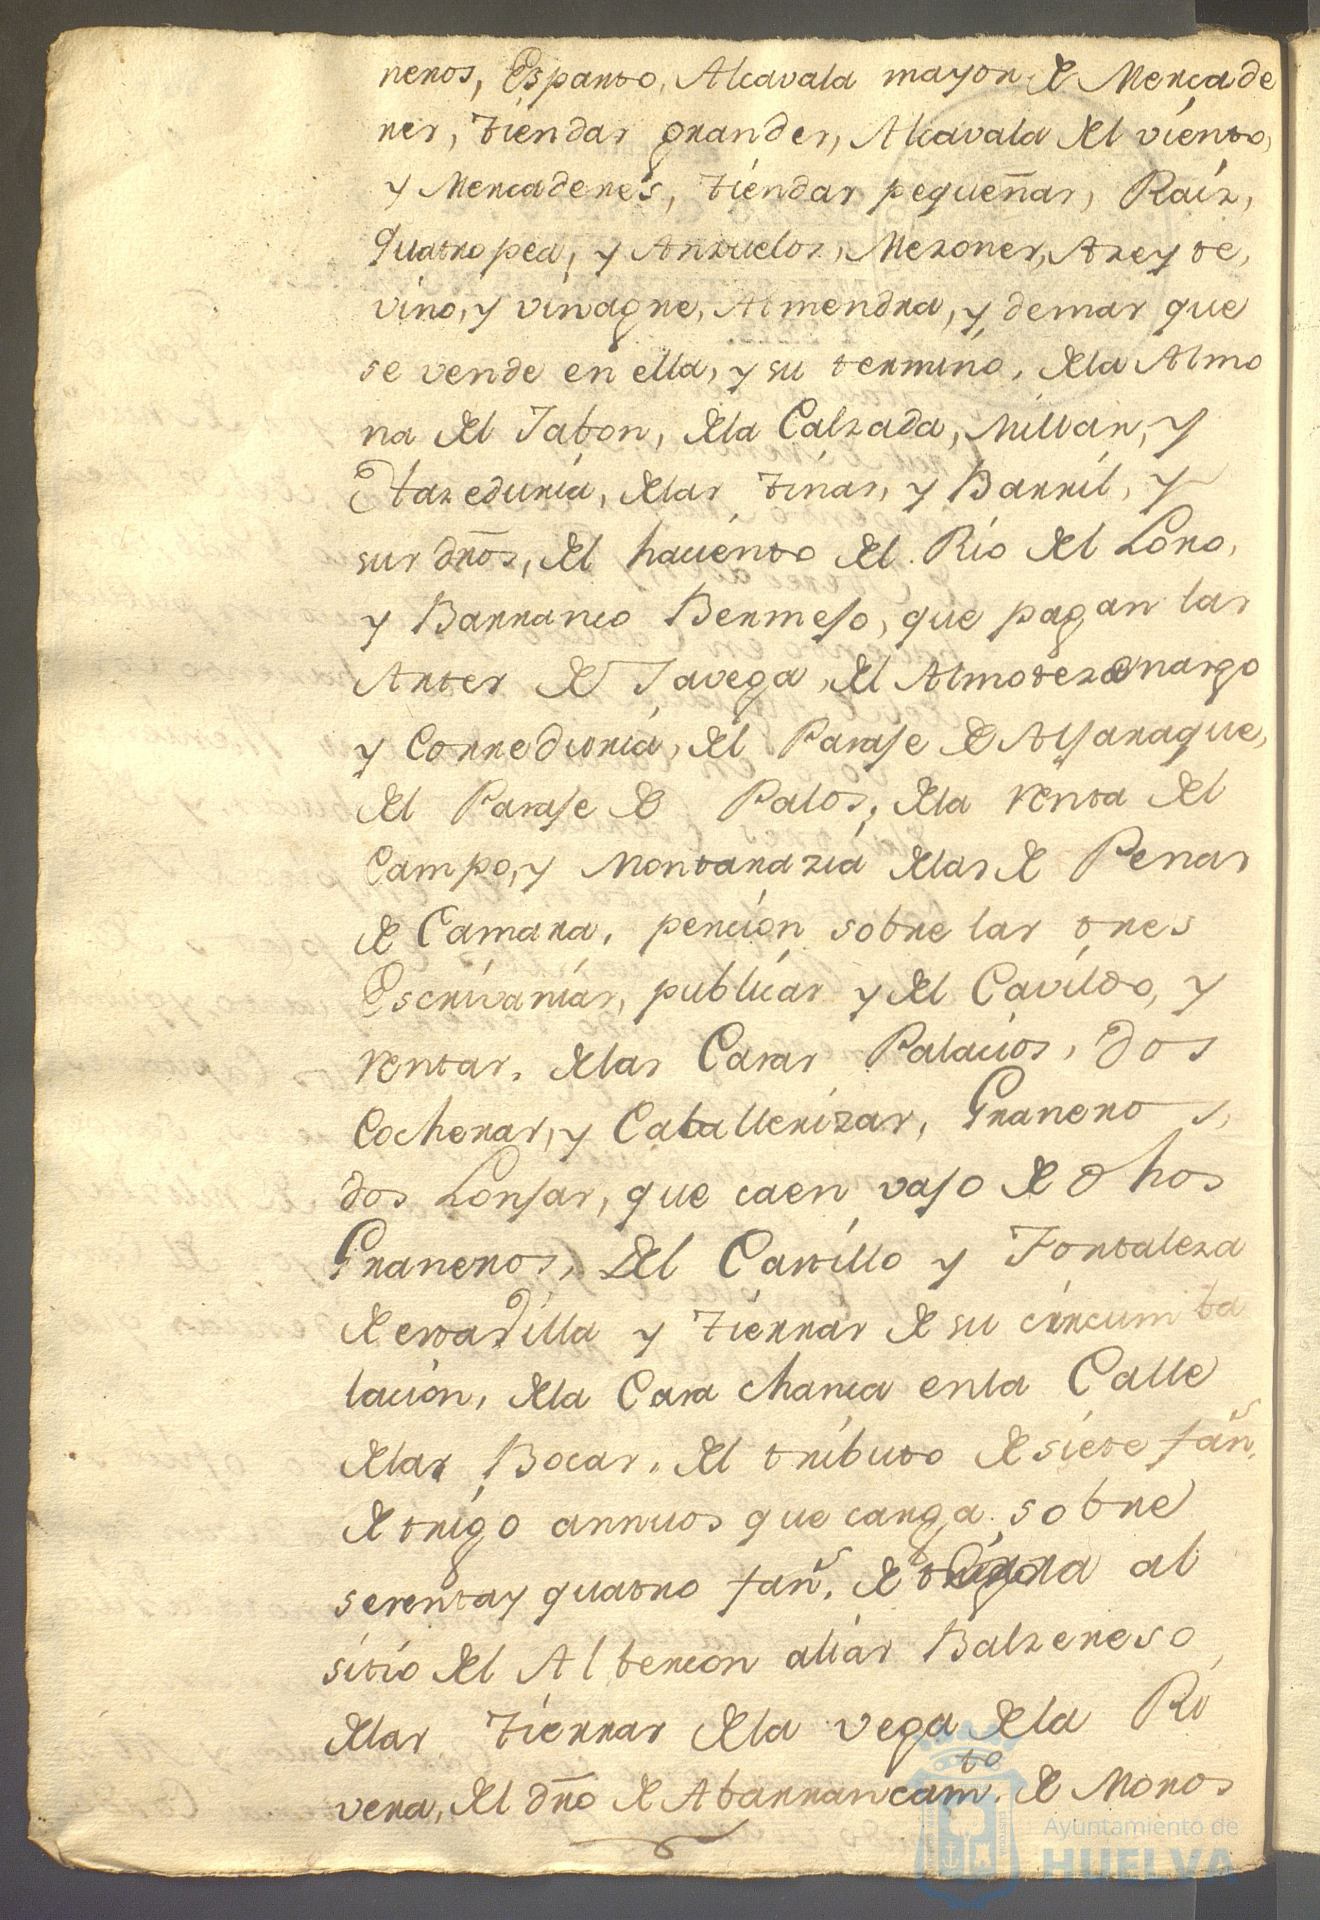 neros, Esparto, Alcavala mayor de Mercade
res, tiendas grandes, Alcavala del viento,
y Mercaderes, tiendas pequeñas, Raiz,
Quatropea, y Anzuelos, Mezones, Azeyte,
vino, y vinagre, Almendra, y demas que
se vende en ella, y su termino, dela Almo
na del Jabon, dela Calzada, Millar, y
Hazeduria, delas tinas, y Barril, y
sus dr̃os, del haciento del Rio del Loro,
y Barranco Bermejo, que pagan las
Artes de Javega, del Almotezenazgo
y Correduria, del Paraje de Aljaraque,
del Paraje de Palos, dela renta del
Campo, y Montarazia delas de Penas
de Camara, pencion sobre las tres
Escrivanias, publicas y del Cavildo, y
rentas, delas Casas Palacios, dos
Cocheras, y Caballerizas, Graneros,
dos Lonjas, que caen vajo de dhos
Graneros, del Castillo y Fortaleza
de estta Villa y tierras de su circumba
lacion, dela Casa chanca enla Calle
delas Bocas, del tributo de siete fan.s
de trigo annuos que carga sobre
sesenta y quatro fan.s de tierra al
sitio del Albercon alias Balzerejo,
delas tierras dela vega dela Ri
vera, del dr̃o de Abarrancam.to de Moros
Ayuntamiento de
HUELVA